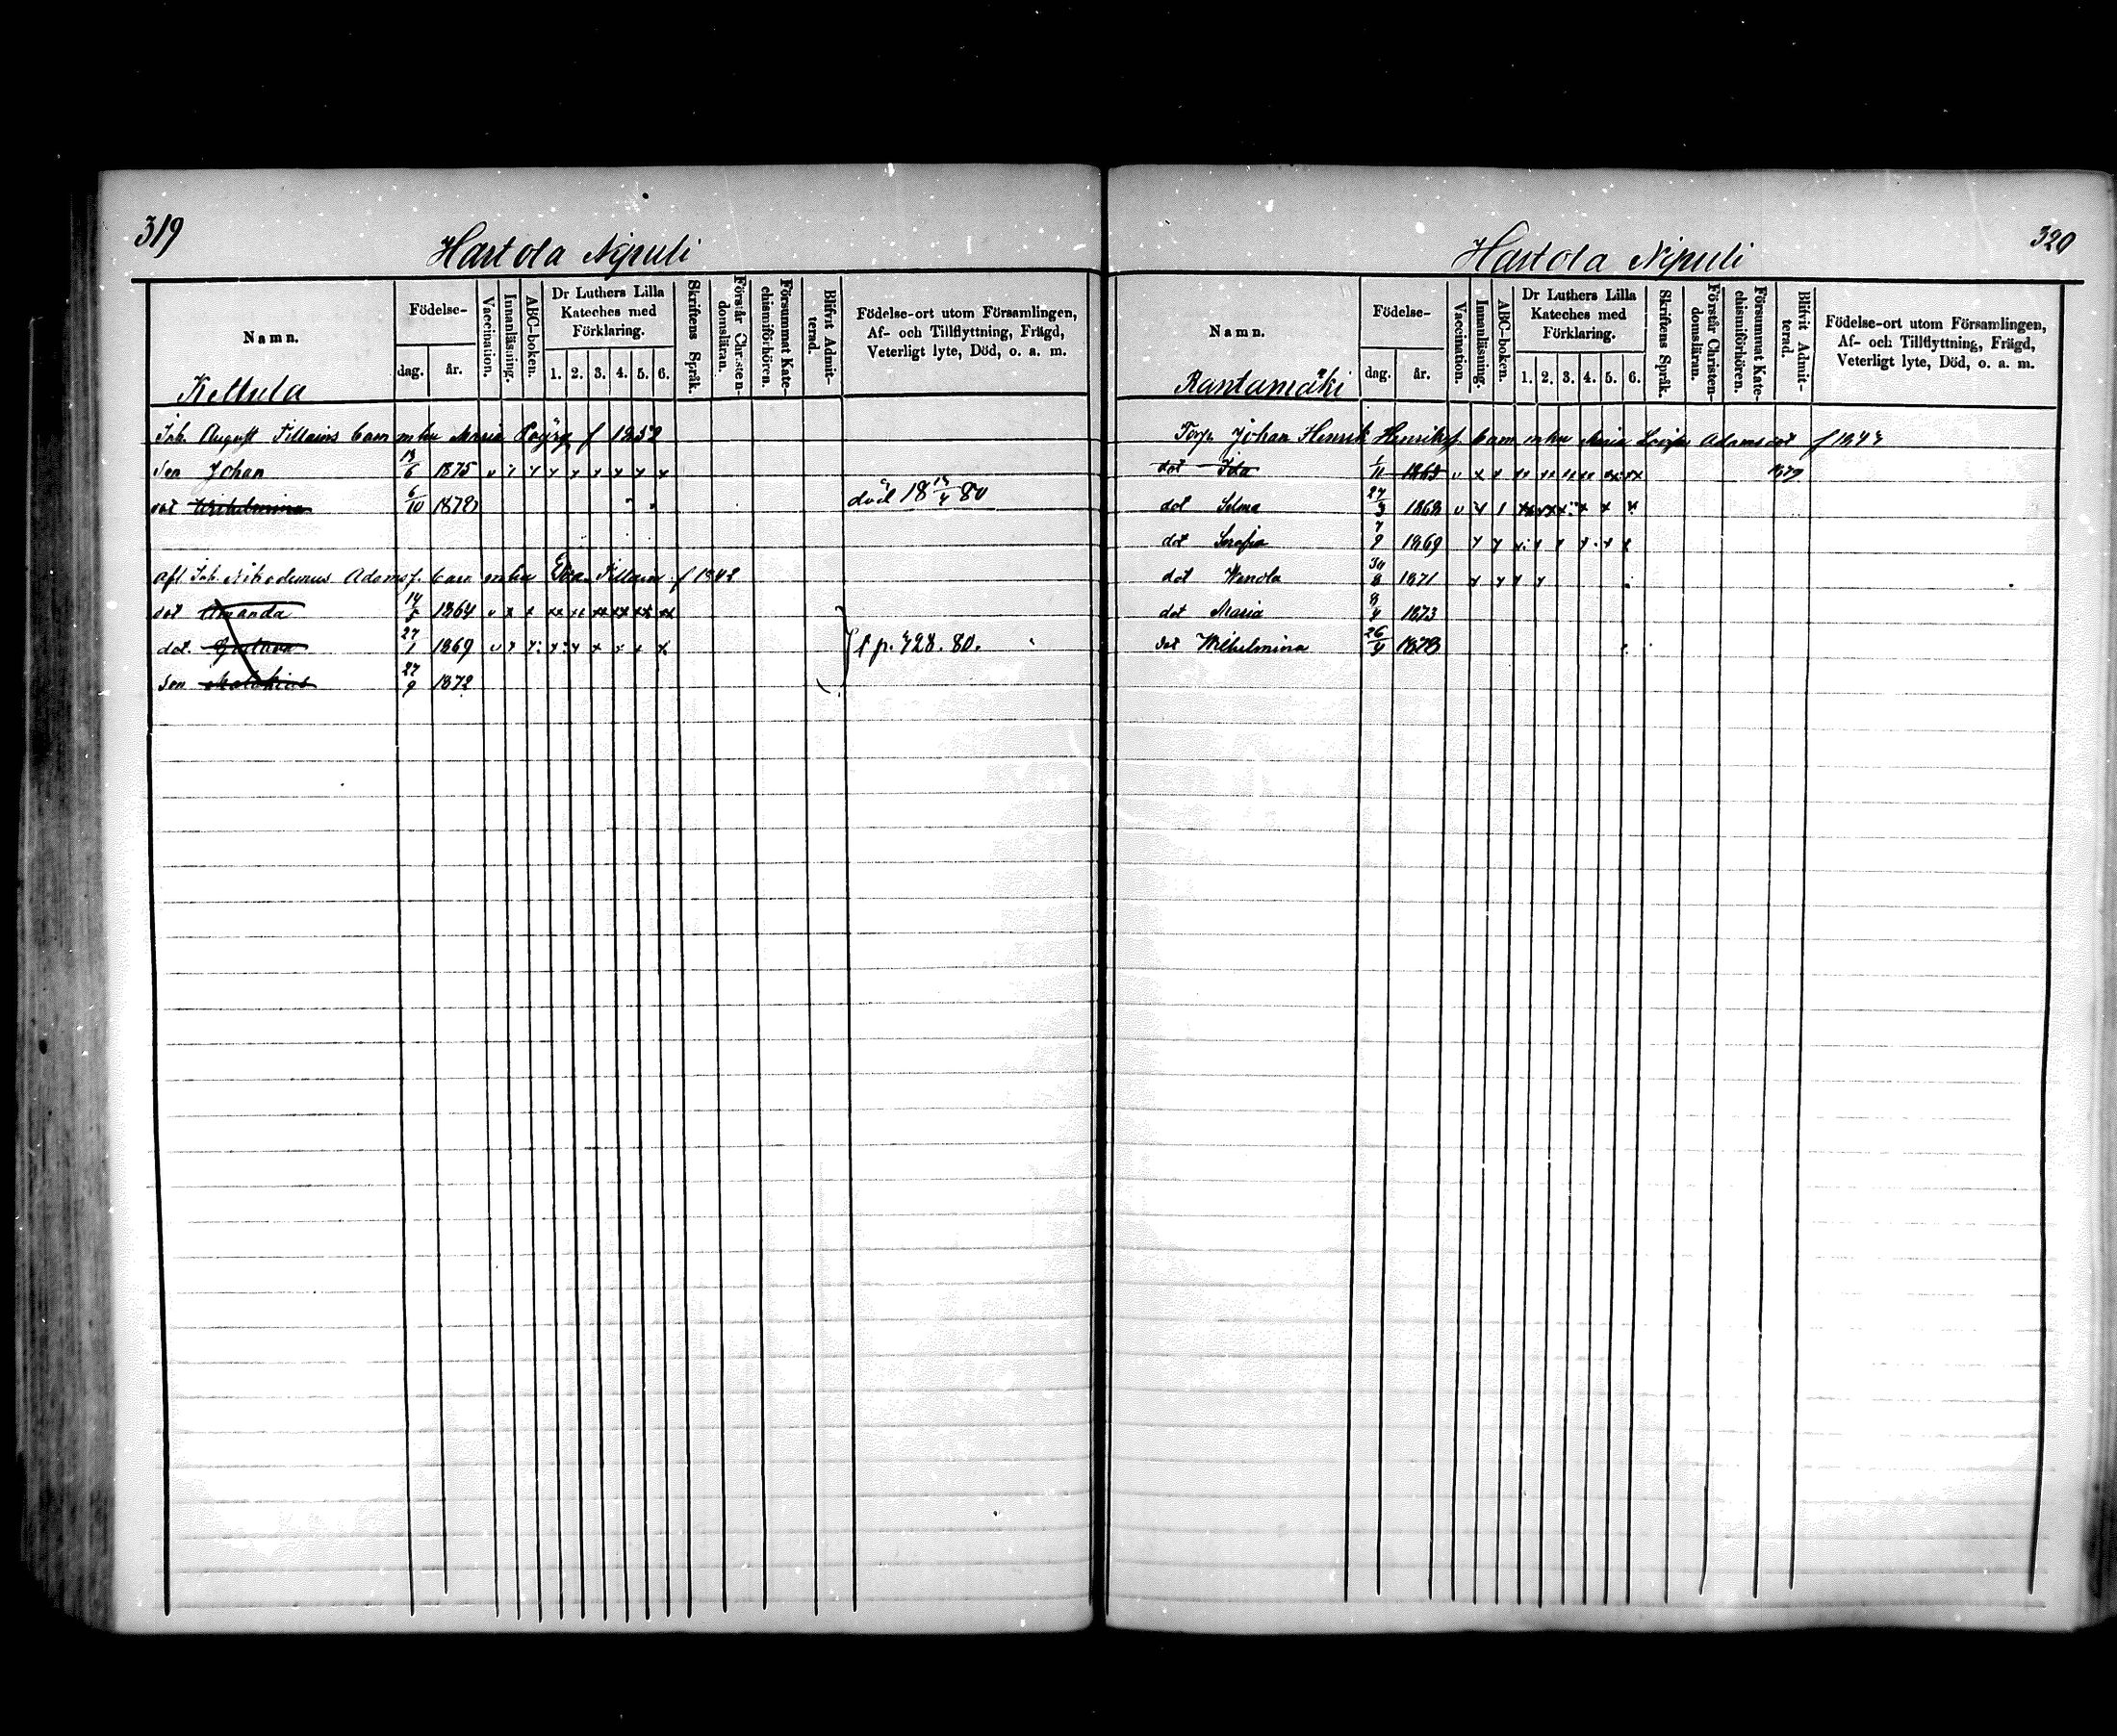 319
Hartola Nipuli
Namn.
Födelse-
dag.
år.
Vaccination.
Innanläsning.
ABC-boken.
Dr Luthers Lilla Kateches med Förklaring.
1. 2. 3. 4. 5. 6.
Skriftens Språk.
Förstår Christendomsläran.
Försummat Katechismiförhören.
Blifvit Admitterad.
Födelse-ort utom Församlingen, Af- och Tillflyttning, Frägd, Veterligt lyte, Död, o. a. m.
Kettula
Joh. August barn m hu Maria f 1852
Son Johan 13/6 1875 v
dot Wilhelmina 6/10 1878 död 18 /4 80
Afl. Joh. Nikodemus Adamsf. barn m hu f 1842
dot Amanda 14/5 1864 v x x xx xx xx xx xx xx
dot. Gustava 27/1 1869 v 428. 80.
Son 27/9 1872
320
Hartola Nipuli
Namn.
Födelse-
dag.
år.
Vaccination.
Innanläsning.
ABC-boken.
Dr Luthers Lilla Kateches med Förklaring.
1. 2. 3. 4. 5. 6.
Skriftens Språk.
Förstår Christendomsläran.
Försummat Katechismiförhören.
Blifvit Admitterad.
Födelse-ort utom Församlingen, Af- och Tillflyttning, Frägd, Veterligt lyte, Död, o. a. m.
Rantamäki
Torp. Johan Henrik Henriksf barn m hu Maria Lovisa Adamsdot f 1843
dot Ida 1/11 1863 v x x 1879
dot Selma 27/3 1868 v
dot Serafia 7/9 1869
dot Wendla 30/8 1871
dot Maria 8/4 1873
dot Wilhelmina 26/4 1878